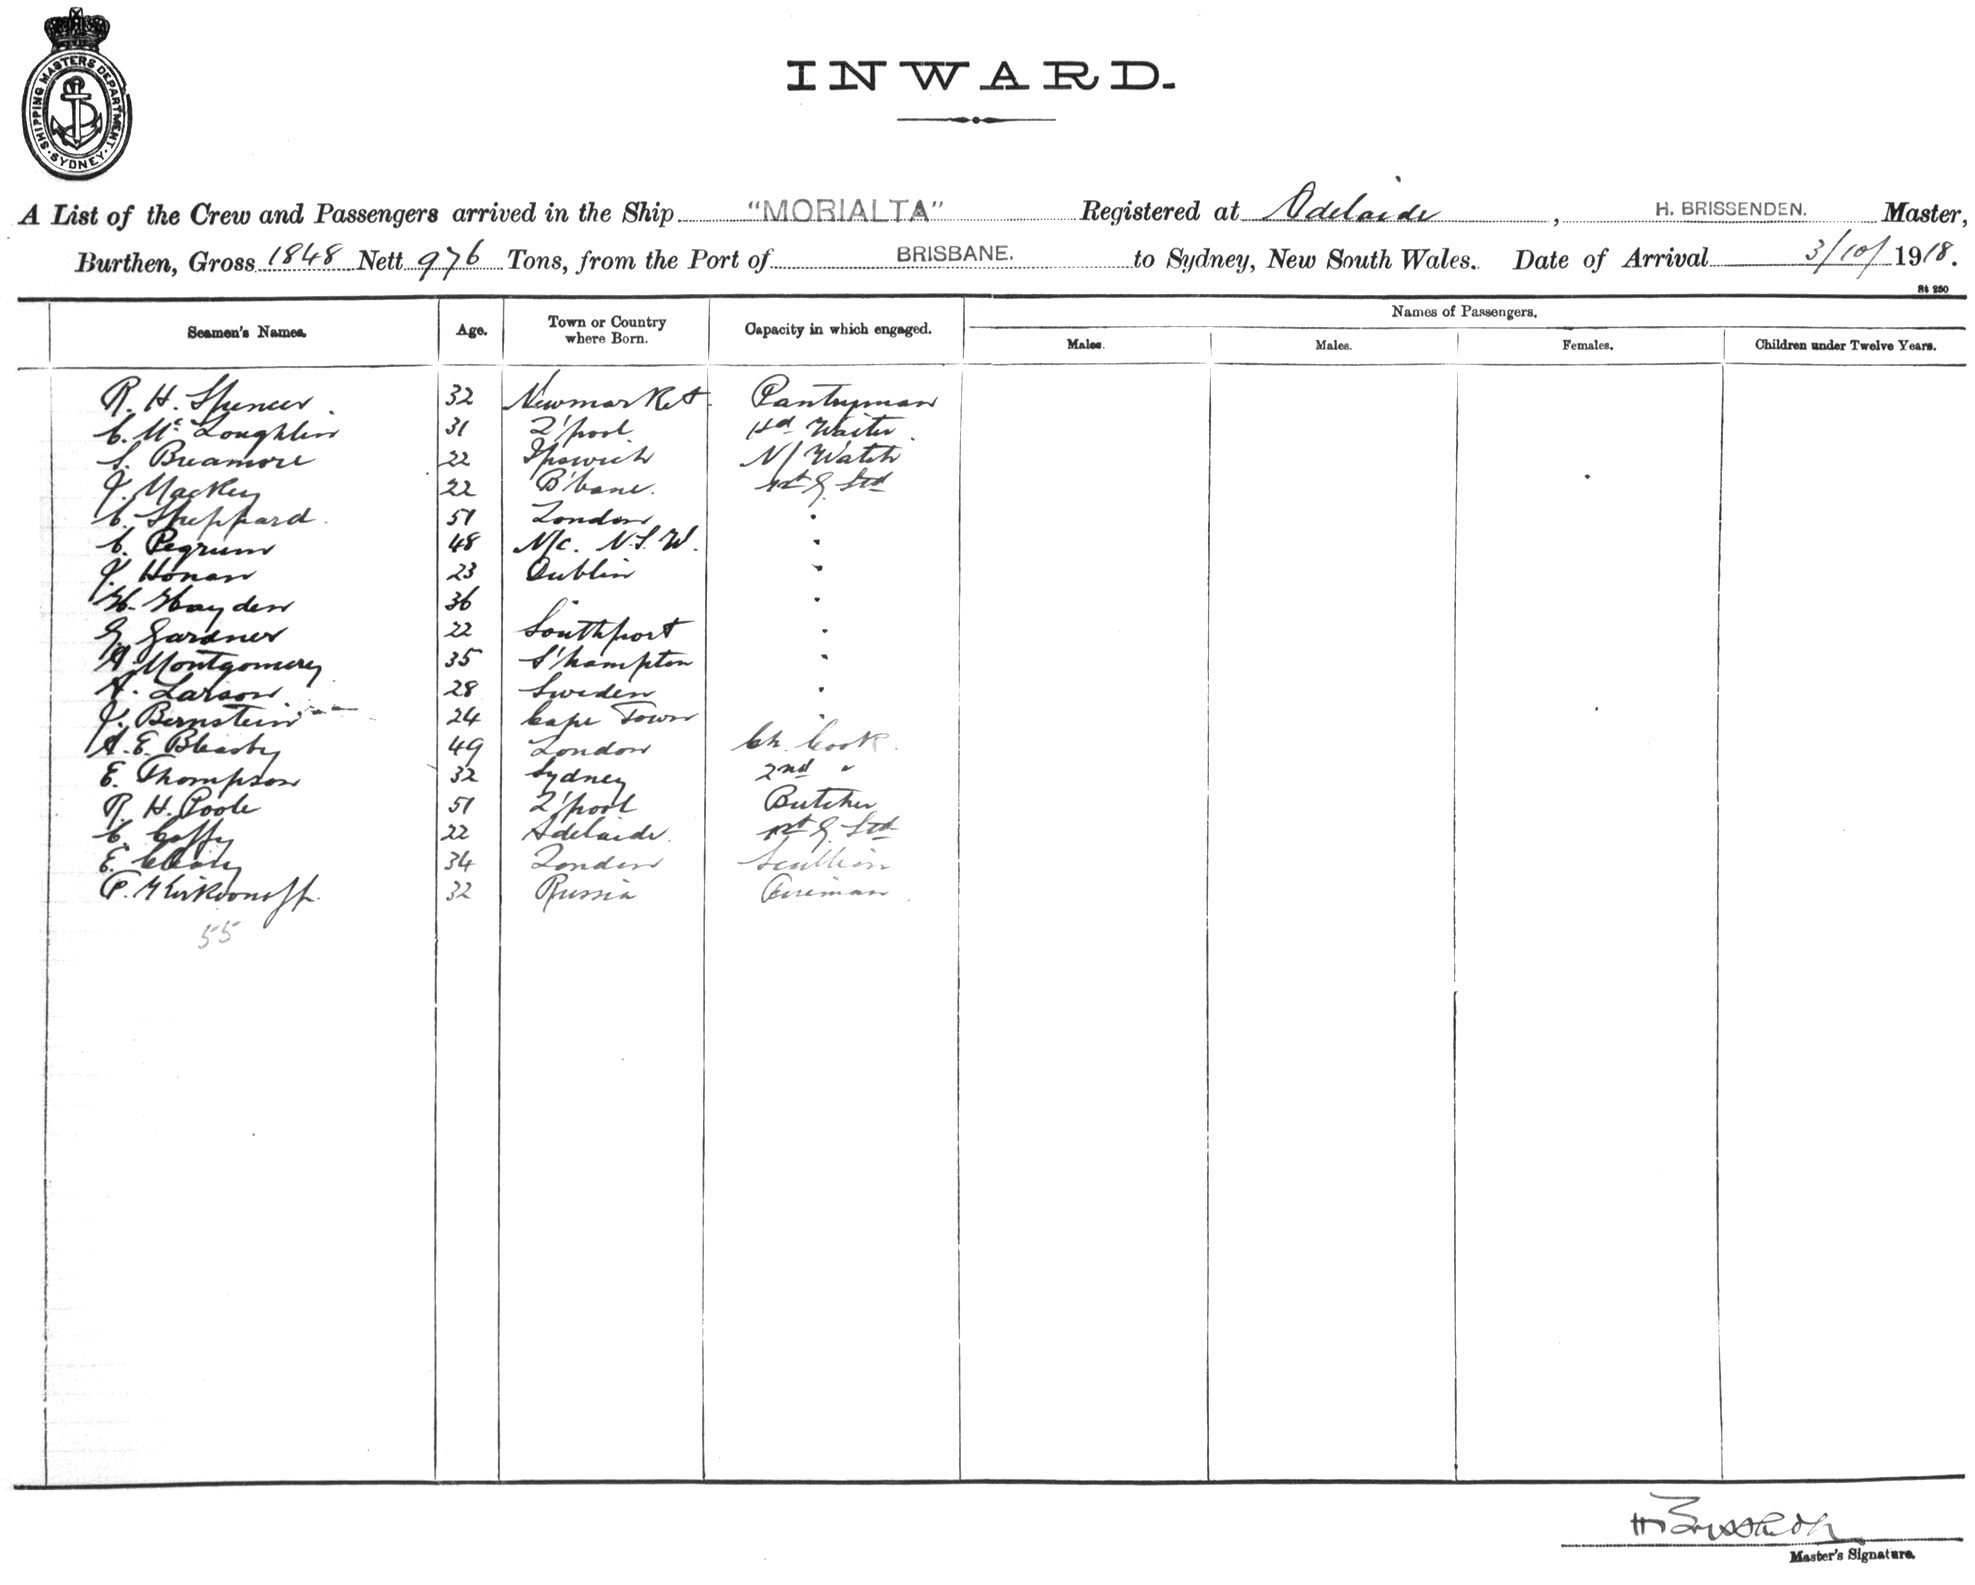 SHIPPING MASTERS DEPARTMENT. SYDNEY.
INWARD.
A List of the Crew and Passengers arrived in the Ship "MORIALTA" Registered at Adelaide, H. BRISSENDEN. Master,
Burthen, Gross 1848 Nett 976 Tons, from the Port of BRISBANE. to Sydney, New South Wales. Date of Arrival 3/10/1918.
St 250
Seamen's Names. Age. Town or Country where Born. Capacity in which engaged. Names of Passengers.
Males. Males. Females. Children under Twelve Years.
R. H. Spencer. 32 Newmarket Pantryman
C. Mc Loughlin 31 L'pool Hd Waiter.
S. Breamore 22 Ipswich N/ Watch
J. Mackey 22 B'bane. 1st G. Std
C. Sheppard. 51 London "
C. Pegrum 48 N/c. N.S.W. "
J. Honan 23 Dublin "
H. Hayden 36 " "
G. Gardner 22 Southport "
A. Montgomery 35 S'hampton "
A. Larson 28 Sweden "
J. Bernstein 24 Cape Town "
A. E. Bleasby 49 London Ch. Cook.
E. Thompson 32 Sydney 2nd "
R. H. Poole 51 L'pool Butcher
C. 22 Adelaide. 1st G. Std
E. 34 London Scullion
P. 32 Russia Fireman
55
Master's Signature.